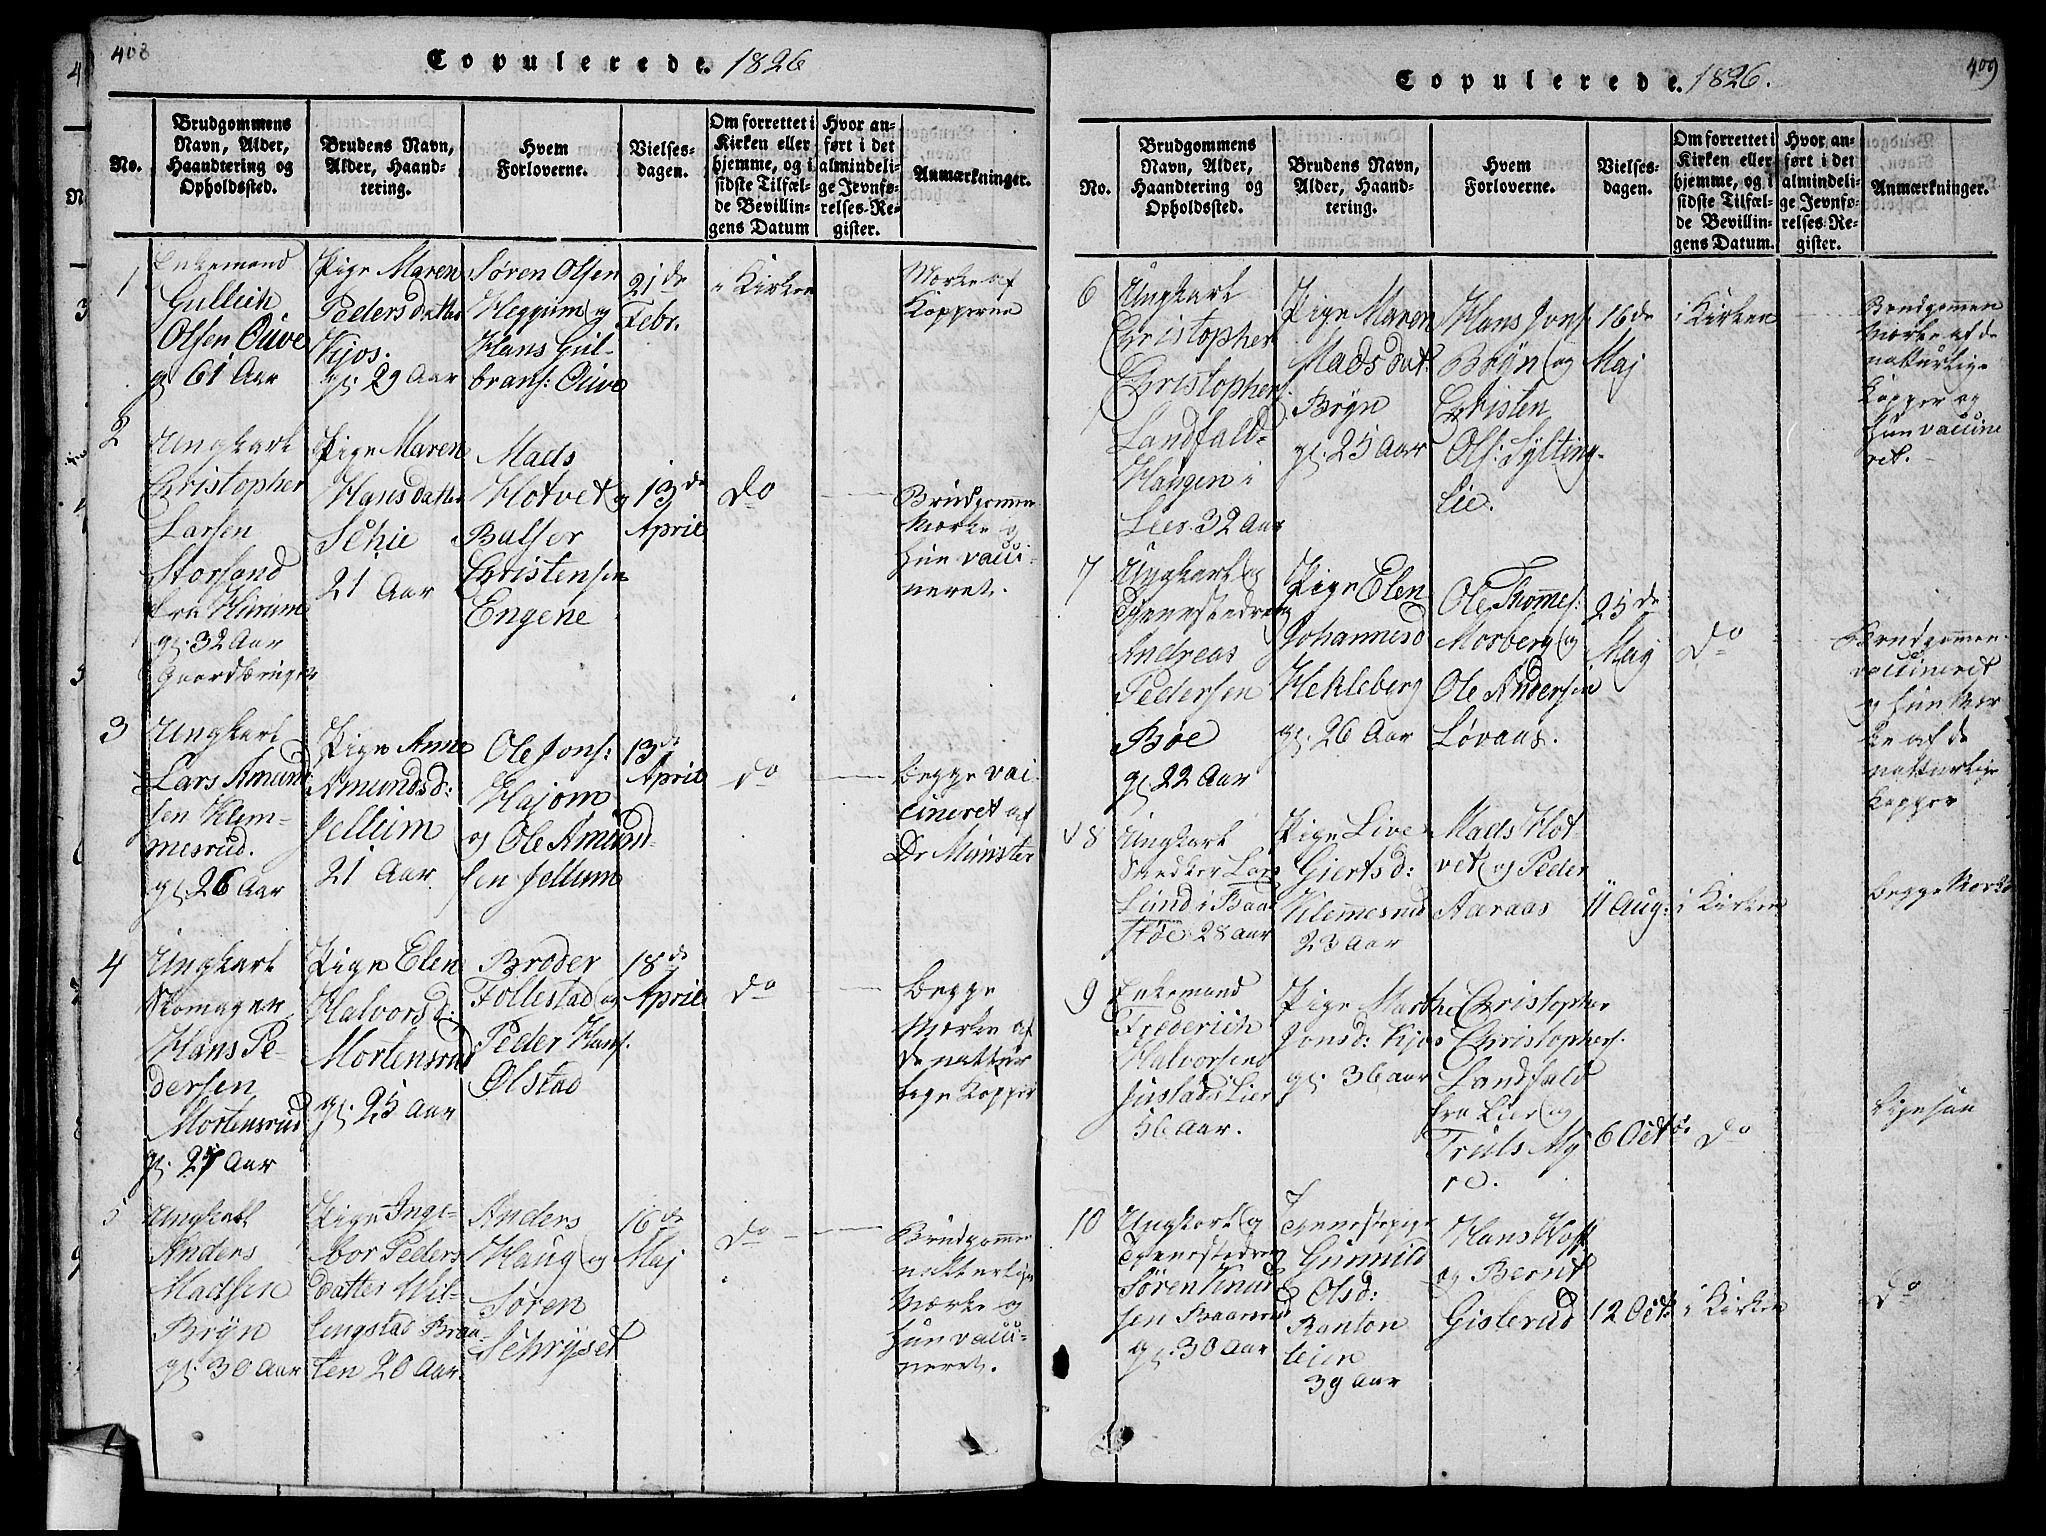 408
Copulerede. 1826
No.
Brudgommens
Navn, Alder,
Haandtering og
Opholdssted.
Brudens Navn,
Alder, Haand-
tering.
Hvem
Forloverne.
Vielses-
dagen.
Om forrettet i
Kirken eller
hjemme, og i
sidste Tilfæl-
de Bevillin-
gens Datum
Hvor an-
ført i det
almindeli-
ge Jevnfø-
relses-Re-
gister.
Anmærkninger.
1
Enkemand
Gullich
Olsen Ouve
g 61 Aar
Pige Maren
Pedersdatter
Kjos.
gl. 29 Aar
Søren Olsen
Heggum og
Hans Gul-
brans: Ouve
21de
Febr.
i Kirken
Mærke af
Kopperne
2
Ungkarl
Christopher
Larsen
Storsand
fra Hurum
gl. 32 Aar
Gaardbruger
Pige Maren
Hansdatter
Schie
21 Aar
Mads
Hotvet og
Balser
Christensen
Engene
13de
April
Do
Brudgommen
Mærke og
hun vacci-
neret.
3
Ungkarl
Lars Amund
sen Klem-
mesrud.
gl. 26 Aar
Pige Anne
Amundsd:
Jellum
21 Aar
Ole Jons:
Hajom
og Ole Amund-
sen Jellum
13de
April
Do
begge vac-
cineret af
Dr Munster
4
Ungkarl
Skomager
Hans Pe-
dersen
Mortensrud
gl. 27 Aar
Pige Elen
Halvorsd:
Mortensrud
gl. 25 Aar
Broder
Follestad og
Peder Hans.
Ølstad
18de
April
Do
begge
Mærke af
de natur
lige Kopper
5
Ungkarl
Anders
Madsen
Brÿn
gl. 30 Aar
Pige Inge-
bor Peders
datter Wil-
lengstad Braa-
ten 20 Aar.
Anders
Haug og
Søren
Schrøset
16de
Maj
Do
Brudgommen
naturlige
Mærke og
hun vacci-
neret.
409
Copulerede. 1826.
No.
Brudgommens
Navn, Alder,
Haandtering og
Opholdssted.
Brudens Navn,
Alder, Haand-
tering.
Hvem
Forloverne.
Vielses-
dagen.
Om forrettet i
Kirken eller
hjemme, og i
sidste Tilfæl-
de Bevillin-
gens Datum.
Hvor an-
ført i det
almindeli-
ge Jevnfø-
relses-Re-
gister.
Anmærkninger.
6
Ungkarl
Christopher
Christophers.
Landfald-
Haugen i
Lier. 32 Aar
Pige Maren
Madsdat:
Brÿn
gl. 25 Aar
Hans Jons
Brÿn og
Christen
Ols: Sylting-
lie.
16de
Maj
i Kirken
Brudgommen
Mærke af de
naturlige
Kopper og
hun vaccine
ret.
7
Ungkarl og
Tjenestedreng
Andreas
Pedersen
Bøe
gl 22 Aar
Pige Elen
Johannesd
Hekleberg
gl. 26 Aar
Ole Thomes:
Morberg og
Ole Andersen
Løvaas.
25de
Maj
Do
Brudgommen
vaccineret
og hun Mær
ke af de
naturlige
Kopper
8
Ungkarl
Snedker Lars
Lund i
28 Aar
Pige Live
Giertsd:
Klemmesrud
23 Aar
Mads Hot
vet og Peder
Aaraas
11 Aug:
i Kirken
begge Mærke
9
Enkemand
Frederich
Halvorsen
Justad i Lier
56 Aar.
Pige Marthe
Jonsd: Kjos
gl. 36 Aar
Christopher
Christophers.
Landfald
fra Lier og
Truls My
re.
6 Octb.
Do
Ligesaa
10
Ungkarl og
Tjenestedreng
Søren Knud
sen Baarsrud
gl. 30 Aar
Tjenestepige
Gunnild
Olsd:
Ranton
leien
39 Aar
Hans Hoff
og Bernt
Gisterud
12 Oct.
i Kirken
Do